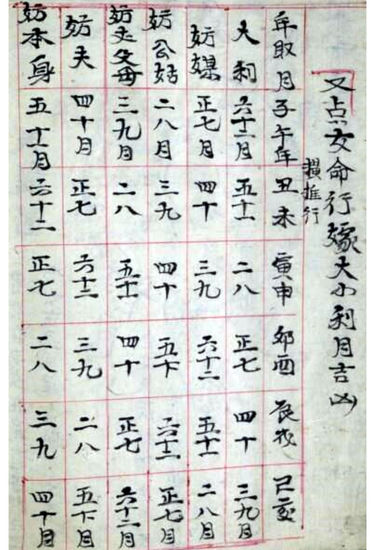 又点女命行嫁大小利月吉凶
横推行
年取月 子午年 丑未 寅申 卯酉 辰戌 己亥
大利 六十二月 五十一 二八 正七 四十 三九月
妨媒 正七月 四十 三九 六十二 五十一 二八月
妨公姑 二八月 三九 四十 五十一 六十二 正七月
妨父母 三九月 二八 五十一 四十 正七 六十二月
妨夫 四十月 正七 六十二 三九 二八 五十一月
妨本身 五十一月 六十二 正七 二八 三九 四十月